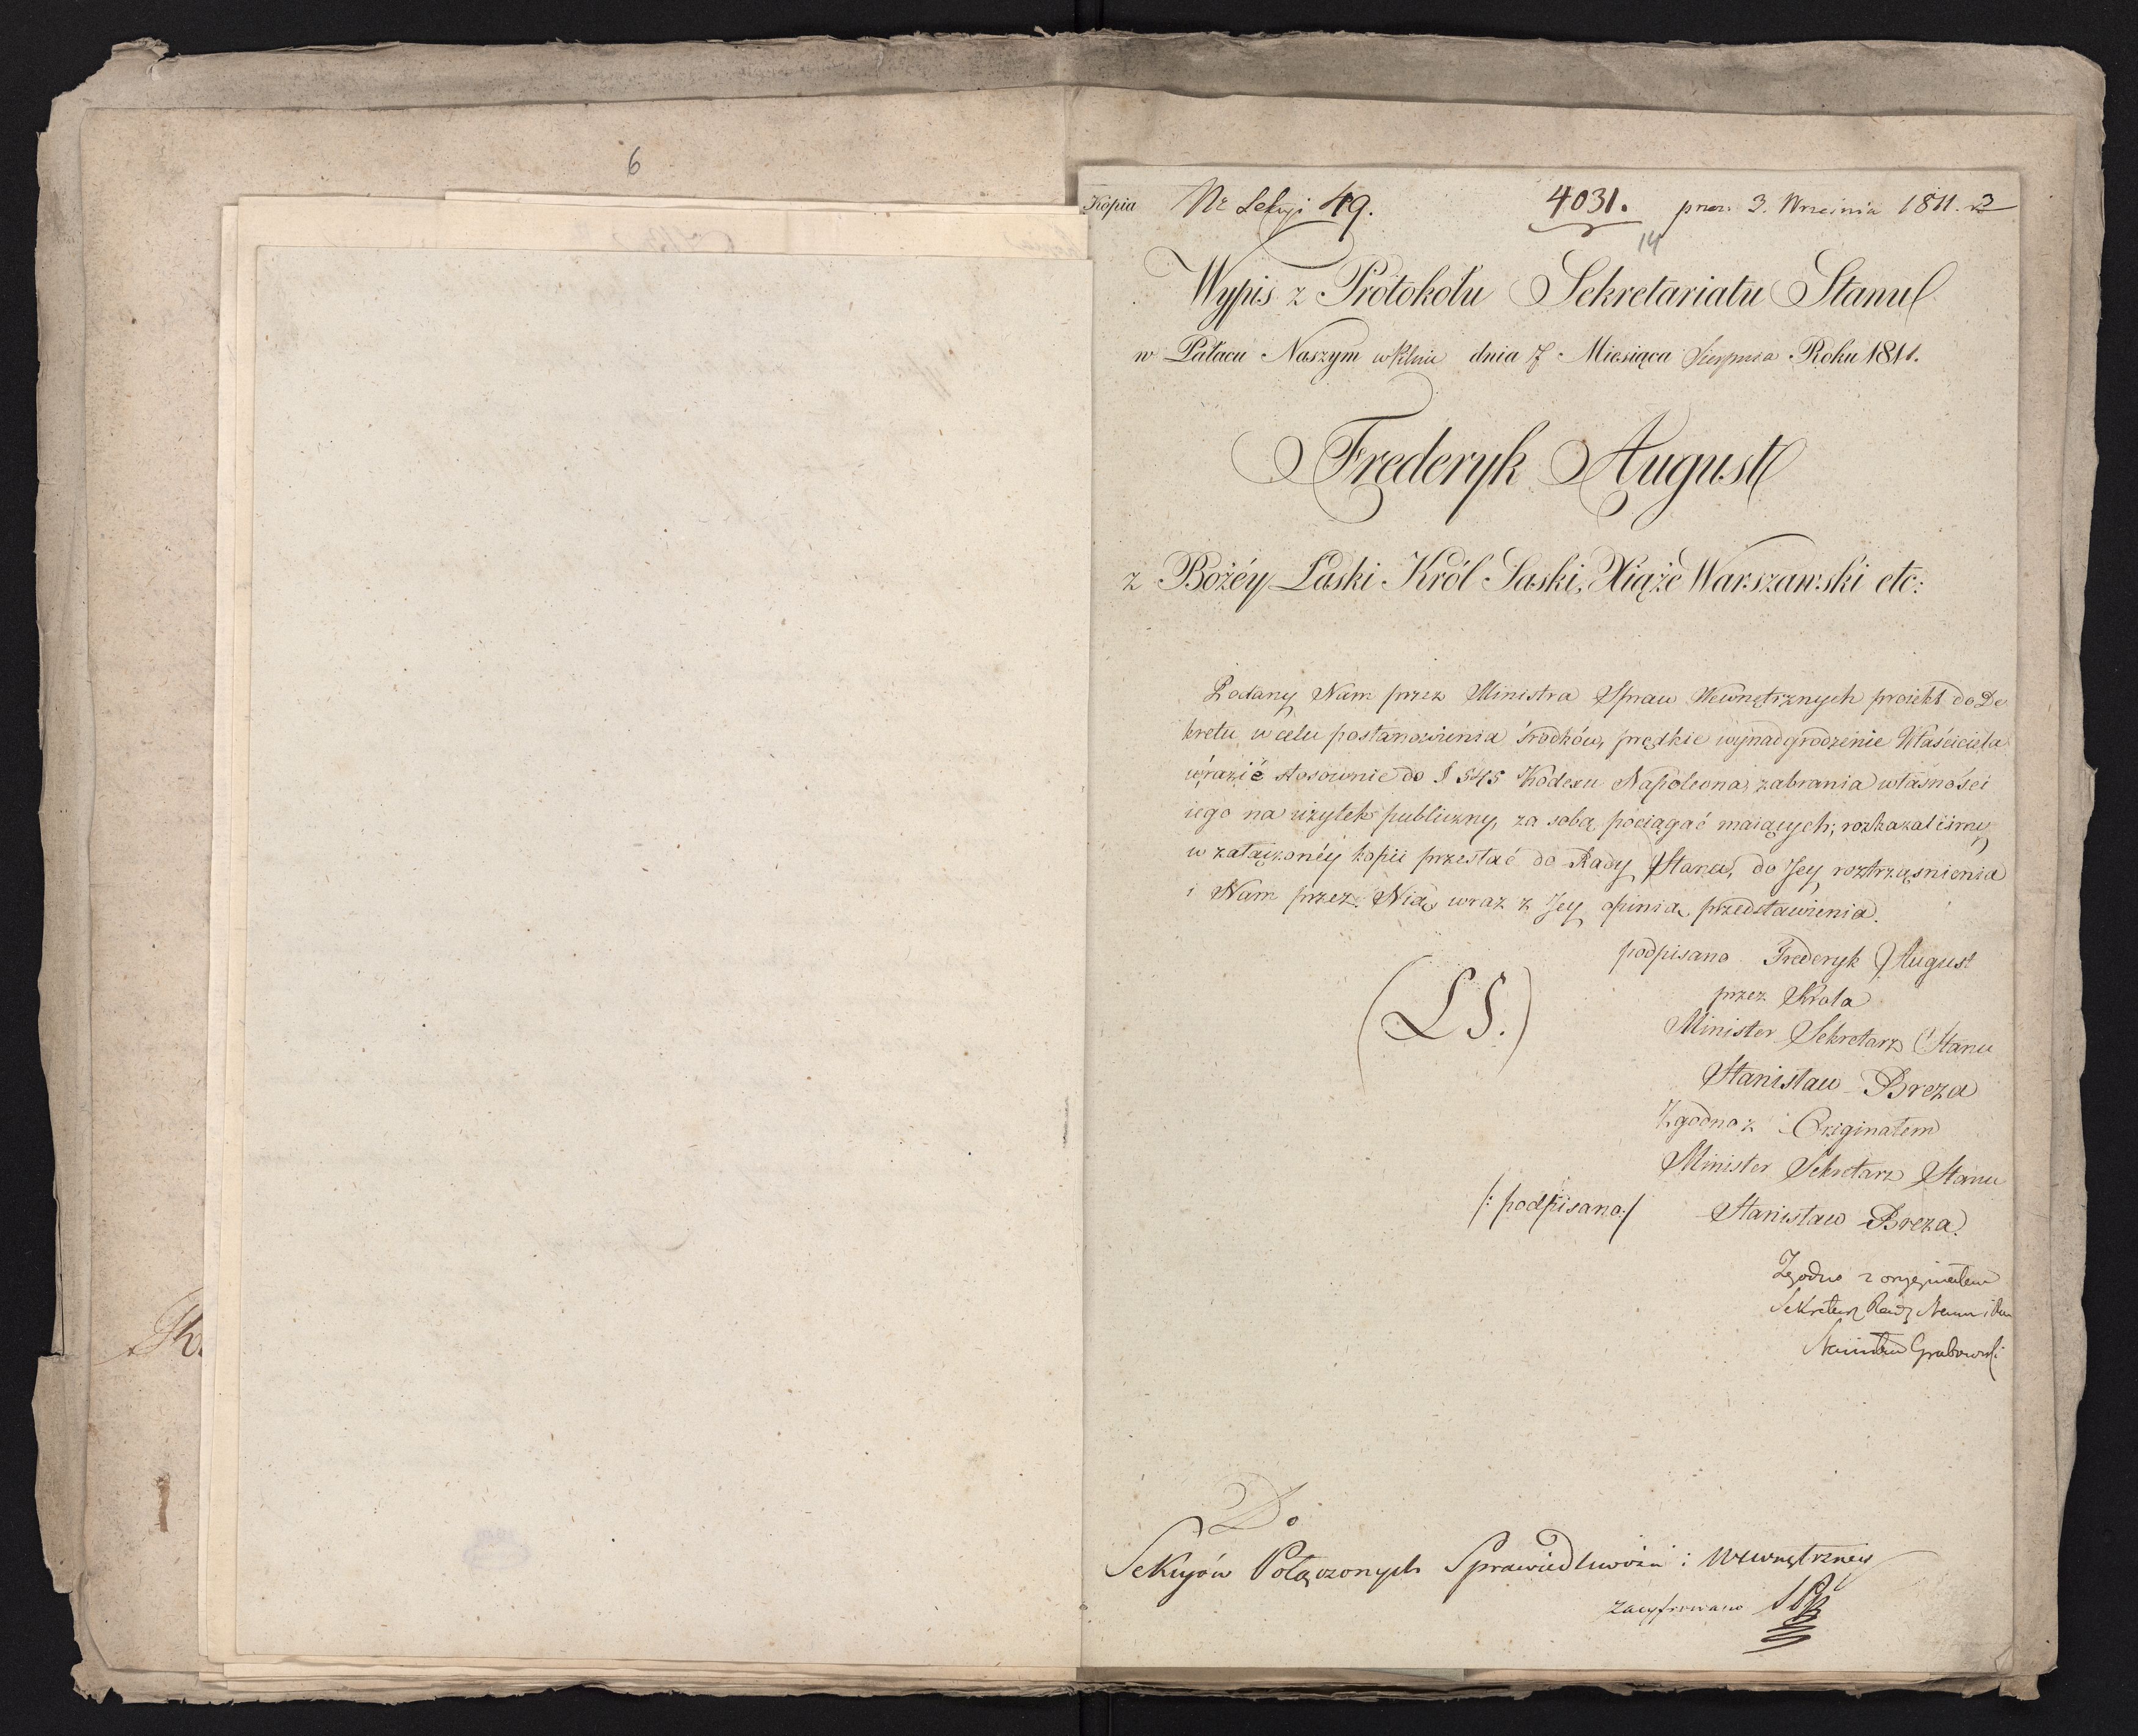 6
Kopia Nr Sekcyi 49. 4031. prez. 3. Wrzesnia 1811. 2
14
Wypis z Protokołu Sekretariatu Stanu
w Pałacu Naszym w Pilnie dnia 7 Miesiąca Sierpnia Roku 1811.
Frederyk August
z Bożéy Łaski Król Saski, Xiąże Warszawski etc:
Podany Nam przez Ministra Spraw Wewnętrznych proiekt do De
kretu w celu postanowienia środków, prędkie wynadgrodzenie Właściciela
w razie stosownie do § 545 Kodexu Napoleona, zabrania własności
iego na użytek publiczny, za sobą pociągać maiących; rozkazaliśmy
w załączonéy kopii przesłać do Rady Stanu, do Jey roztrząśnienia
i Nam przez Nią wraz z Jey opinią przedstawienia.
podpisano Frederyk August
przez Krola
(LS.)
Minister Sekretarz Stanu
Stanisław Breza
Zgodno z Originałem
Minister Sekretarz Stanu
/: podpisano:/ Stanisław Breza.
Zgodno z oryginałem
Sekretarz Rady Stanu
Stanisław Grabowski
Do
Sekcyów Połączonych Sprawiedliwości i Wewnętrzney
zacyfrowano